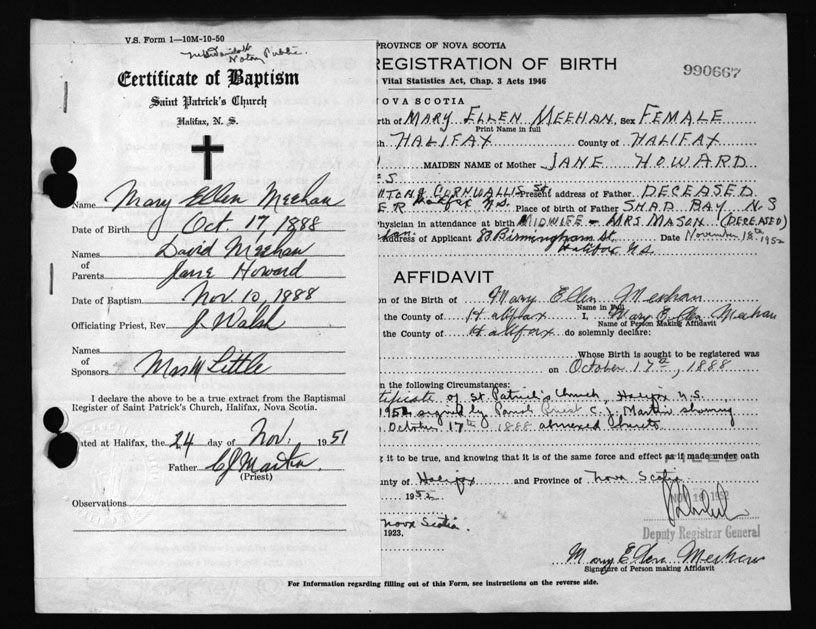 V.S. Form 1—10M-10-50
Notary Public.
Certificate of Baptism
Saint Patrick's Church
Halifax, N. S.
Name Mary Ellen Meehan
Date of Birth Oct. 17, 1888
Names David Meehan
of
Parents Jane Howard
Date of Baptism Nov. 10, 1888
Officiating Priest, Rev. J. Walsh
Names
of
Sponsors Little
I declare the above to be a true extract from the Baptismal
Register of Saint Patrick's Church, Halifax, Nova Scotia.
ated at Halifax, the 24 day of Nov. 1951
Father C J Martin.
(Priest)
Observations
ROVINCE OF NOVA SCOTIA
REGISTRATION OF BIRTH
990667
Vital Statistics Act, Chap. 3 Acts 1946
NOVA SCOTIA
rth of MARY ELLEN MEEHAN Sex FEMALE
Print Name in full
HALIFAX County of HALIFAX
MAIDEN NAME of Mother JANE HOWARD
CORNWALLIS St. Present address of Father DECEASED
Halifax N.S. Place of birth of Father SHAD BAY N.S
hysician in attendance at birth MIDWIFE - MRS. MASON (DECEASED)
Address of Applicant Birmingham St. Date November 18th 1952
Halifax N.S.
AFFIDAVIT
on of the Birth of Mary Ellen Meehan
Name in Full
the County of Halifax I, Mary Ellen Meehan
Name of Person Making Affidavit
the County of Halifax do solemnly declare:
Whose Birth is sought to be registered was
on October 17th, 1888
n the following Circumstances:
tificate of St. Patrick's Church, Halifax N.S.
signed by Parish Priest C. J. Martin showing
October 17th 1888 annexed hereto
g it to be true, and knowing that it is of the same force and effect as if made under oath
nty of Halifax and Province of Nova Scotia
1952
Nova Scotia.
1923.
Deputy Registrar General
Mary Ellen Meehan
Signature of Person making Affidavit
For Information regarding filling out of this Form, see instructions on the reverse side.